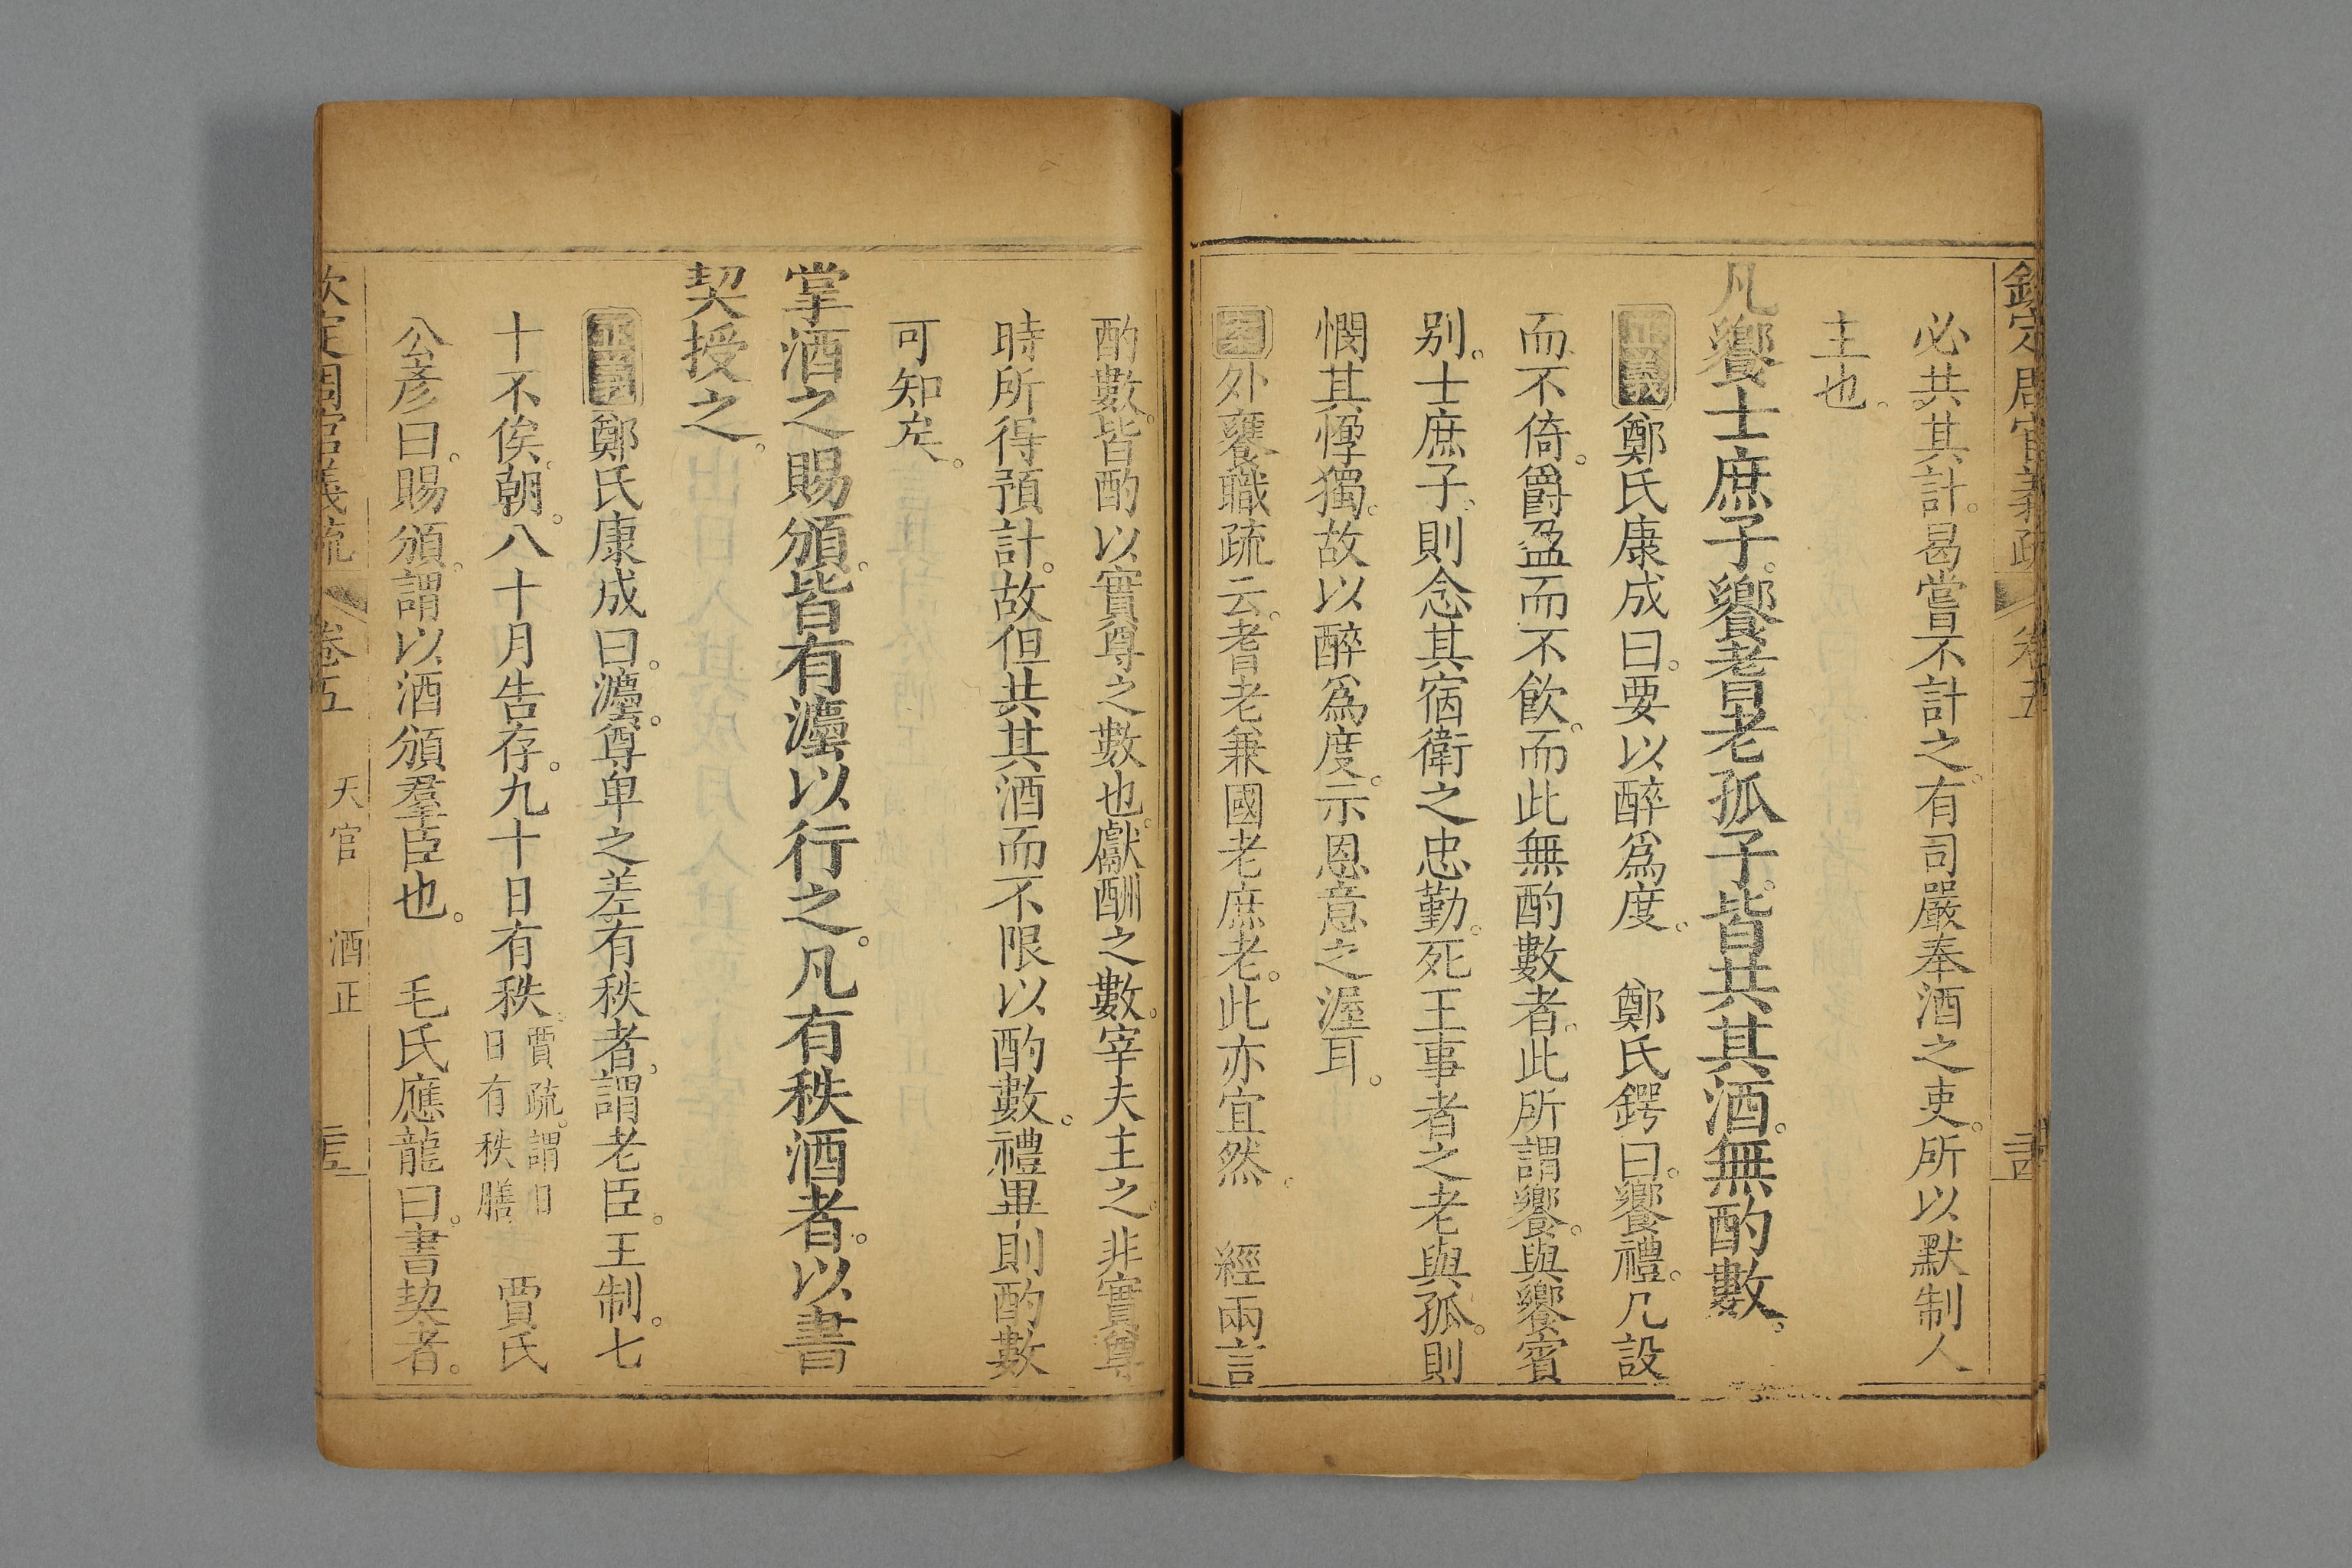 欽定周官義疏 卷五 三十四
必共其計曷嘗不計之有司嚴奉酒之吏所以默制人
主也
凡饗士庶子饗耆老孤子皆共其酒無酌數
正義鄭氏康成曰要以醉爲度 鄭氏鍔曰饗禮几設
而不倚爵盈而不飲而此無酌數者此所謂饗與饗賓
别士庶子則念其宿衛之忠勤死王事者之老與孤則
憫其惸獨故以醉爲度示恩意之渥耳
案外饔職疏云耆老兼國老庶老此亦宜然 經兩言
酌數皆酌以實尊之數也獻酬之數宰夫主之非實尊
時所得預計故但共其酒而不限以酌數禮畢則酌數
可知矣
掌酒之賜頒皆有灋以行之凡有秩酒者以書
契授之
正義鄭氏康成曰灋尊卑之差有秩者謂老臣王制七
十不俟朝八十月告存九十日有秩賈疏謂日日有秩膳 賈氏
公彥曰賜頒謂以酒頒羣臣也 毛氏應龍曰書契者
欽定周官義疏 卷五 天官 酒正 三十五